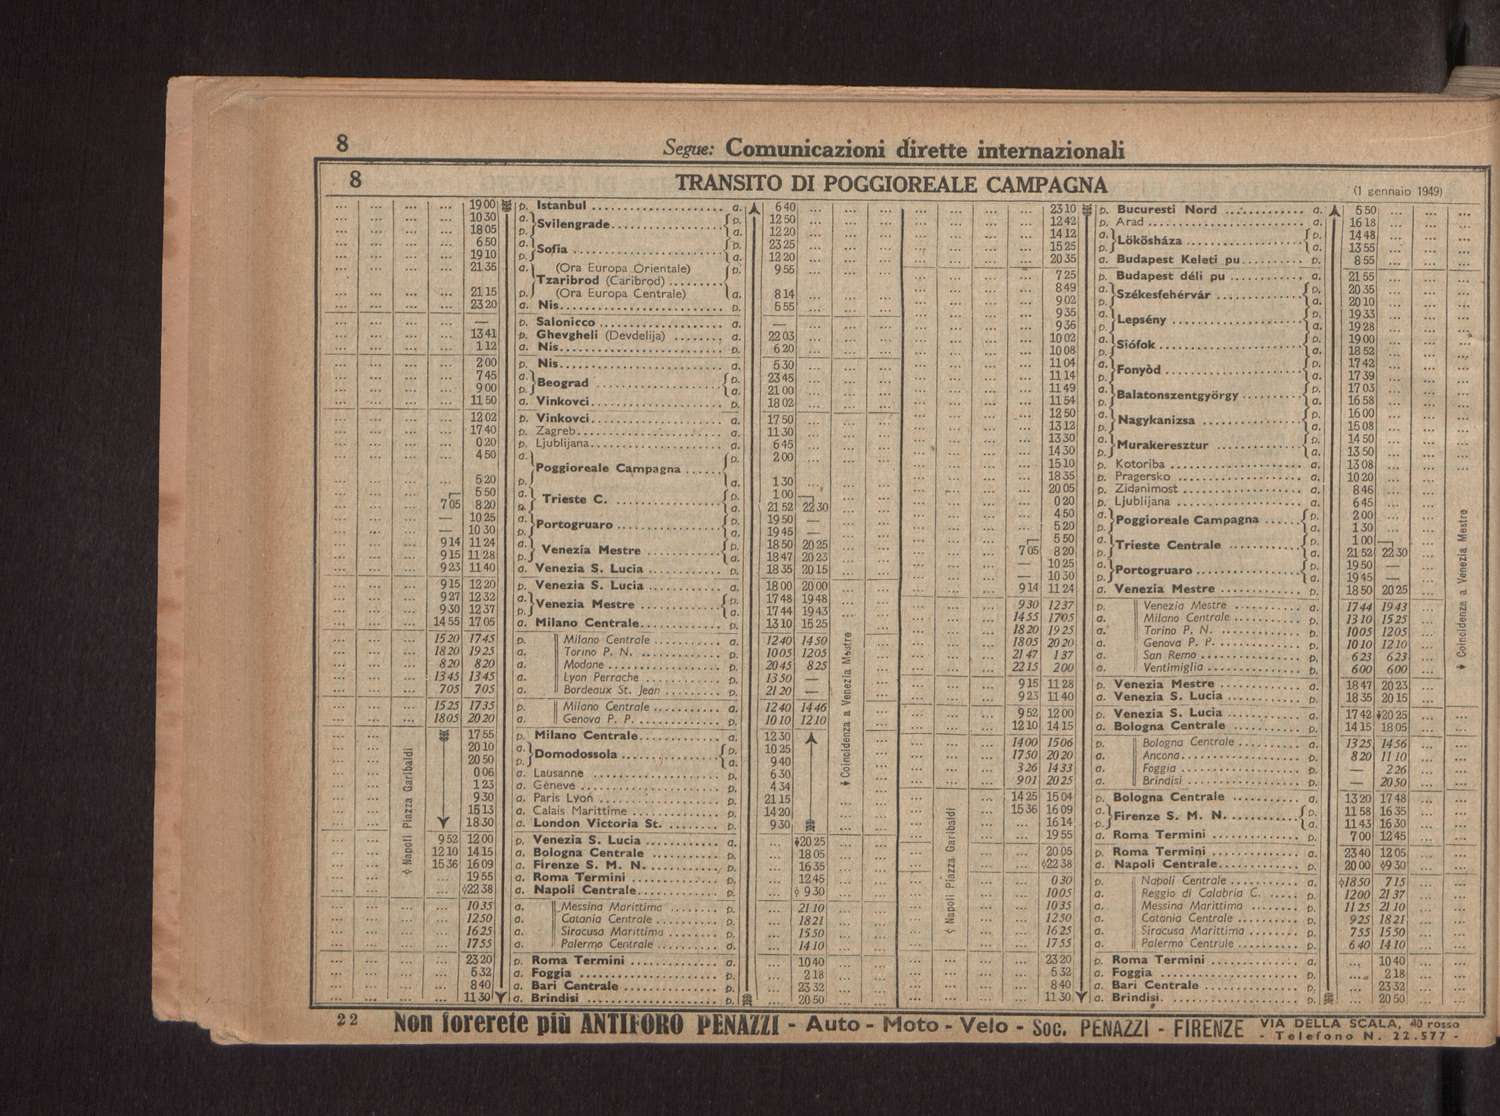 8
Segue: Comunicazioni dirette internazionali
8 TRANSITO DI POGGIOREALE CAMPAGNA (1 gennaio 1949)
19 00 p. Istanbul a. 6 40
10 30 a. Svilengrade p. 12 50
18 05 p. a. 12 20
6 50 a. Sofia p. 23 25
19 10 p. a. 12 20
21 35 a. (Ora Europa Orientale) p. 9 55
Tzaribrod (Caribrod)
21 15 p. (Ora Europa Centrale) a. 8 14
23 20 a. Nis p. 5 55
— p. Salonicco a. —
13 41 p. Ghevgheli (Devdelija) a. 22 03
1 12 a. Nis p. 6 20
2 00 p. Nis a. 5 30
7 45 a. Beograd p. 23 45
9 00 p. a. 21 00
11 50 a. Vinkovci p. 18 02
12 02 p. Vinkovci a. 17 50
17 40 p. Zagreb a. 11 30
0 20 p. Ljublijana a. 6 45
4 50 a. Poggioreale Campagna p. 2 00
5 20 p. a. 1 30
5 50 a. Trieste C. p. 1 00
7 05 8 20 p. a. 21 52 22 30
— 10 25 a. Portogruaro p. 19 50 —
— 10 30 p. a. 19 45 —
9 14 11 24 a. Venezia Mestre p. 18 50 20 25
9 15 11 28 p. a. 18 47 20 23
9 23 11 40 a. Venezia S. Lucia p. 18 35 20 15
9 15 12 20 p. Venezia S. Lucia a. 18 00 20 00
9 27 12 32 a. Venezia Mestre p. 17 48 19 48
9 30 12 37 p. a. 17 44 19 43
14 55 17 05 a. Milano Centrale p. 13 10 15 25
15 20 17 45 p. Milano Centrale a. 12 40 14 50
18 20 19 25 a. Torino P. N. p. 10 05 12 05
8 20 8 20 a. Modane p. 20 45 8 25
13 45 13 45 a. Lyon Perrache p. 13 50 —
7 05 7 05 a. Bordeaux St. Jean p. 21 20 —
15 25 17 35 p. Milano Centrale a. 12 40 14 46
18 05 20 20 a. Genova P. P. p. 10 10 12 10
17 55 p. Milano Centrale a. 12 30
20 10 a. Domodossola p. 10 25
20 50 p. a. 9 40
0 06 a. Lausanne p. 6 30
1 23 a. Gèneve p. 4 34
9 30 a. Paris Lyon p. 21 15
15 13 a. Calais Marittime p. 14 20
18 30 a. London Victoria St. p. 9 30
9 52 12 00 p. Venezia S. Lucia a. 20 25
12 10 14 15 a. Bologna Centrale p. 18 05
15 36 16 09 a. Firenze S. M. N. p. 16 35
19 55 a. Roma Termini p. 12 45
◊22 38 a. Napoli Centrale p. ◊ 9 30
10 35 a. Messina Marittima p. 21 10
12 50 a. Catania Centrale p. 18 21
16 25 a. Siracusa Marittima p. 15 50
17 55 a. Palermo Centrale p. 14 10
23 20 p. Roma Termini a. 10 40
5 32 a. Foggia p. 2 18
8 40 a. Bari Centrale p. 23 32
11 30 a. Brindisi p. 20 50
◊ Napoli Piazza Garibaldi
Coincidenza a Venezia Mestre
23 10 p. Bucuresti Nord a. 5 50
12 42 p. Arad a. 16 18
14 12 a. Lökösháza p. 14 48
15 25 p. a. 13 55
20 35 a. Budapest Keleti pu p. 8 55
7 25 p. Budapest déli pu a. 21 55
8 49 a. Székesfehérvár p. 20 35
9 02 p. a. 20 10
9 35 a. Lepsény p. 19 33
9 36 p. a. 19 28
10 02 a. Siófok p. 19 00
10 08 p. a. 18 52
11 04 a. Fonyòd p. 17 42
11 14 p. a. 17 39
11 49 a. Balatonszentgyörgy p. 17 03
11 54 p. a. 16 58
12 50 a. Nagykanizsa p. 16 00
13 12 p. a. 15 08
13 30 a. Murakeresztur p. 14 50
14 30 p. a. 13 50
15 10 p. Kotoriba a. 13 08
18 35 p. Pragersko a. 10 20
20 05 p. Zidanimost a. 8 46
0 20 p. Ljublijana a. 6 45
4 50 a. Poggioreale Campagna p. 2 00
5 20 p. a. 1 30
5 50 a. Trieste Centrale p. 1 00
7 05 8 20 p. a. 21 52 22 30
— 10 25 a. Portogruaro p. 19 50 —
— 10 30 p. a. 19 45 —
9 14 11 24 a. Venezia Mestre p. 18 50 20 25
9 30 12 37 p. Venezia Mestre a. 17 44 19 43
14 55 17 05 a. Milano Centrale p. 13 10 15 25
18 20 19 25 a. Torino P. N. p. 10 05 12 05
18 05 20 20 a. Genova P. P. p. 10 10 12 10
21 47 1 37 a. San Remo p. 6 23 6 23
22 15 2 00 a. Ventimiglia p. 6 00 6 00
9 15 11 28 p. Venezia Mestre a. 18 47 20 23
9 23 11 40 a. Venezia S. Lucia p. 18 35 20 15
9 52 12 00 p. Venezia S. Lucia a. 17 42 20 25
12 10 14 15 a. Bologna Centrale p. 14 15 18 05
14 00 15 06 p. Bologna Centrale a. 13 25 14 56
17 50 20 20 a. Ancona p. 8 20 11 10
3 26 14 33 a. Foggia p. — 2 26
9 01 20 25 a. Brindisi p. — 20 50
14 25 15 04 p. Bologna Centrale a. 13 20 17 48
15 36 16 09 a. Firenze S. M. N. p. 11 58 16 35
16 14 p. a. 11 43 16 30
19 55 a. Roma Termini p. 7 00 12 45
20 05 p. Roma Termini a. 23 40 12 05
◊22 38 a. Napoli Centrale p. 20 00 ◊9 30
0 30 p. Napoli Centrale a. ◊18 50 7 15
10 05 a. Reggio di Calabria C. p. 12 00 21 37
10 35 a. Messina Marittima p. 11 25 21 10
12 50 a. Catania Centrale p. 9 25 18 21
16 25 a. Siracusa Marittima p. 7 55 15 50
17 55 a. Palermo Centrale p. 6 40 14 10
23 20 p. Roma Termini a. 10 40
5 32 a. Foggia p. 2 18
8 40 a. Bari Centrale p. 23 32
11 30 a. Brindisi p. 20 50
◊ Napoli Piazza Garibaldi
Coincidenza a Venezia Mestre
22 Non forerete più ANTIFORO PENAZZI - Auto - Moto - Velo - Soc. PENAZZI - FIRENZE VIA DELLA SCALA, 40 rosso
- Telefono N. 22.577 -